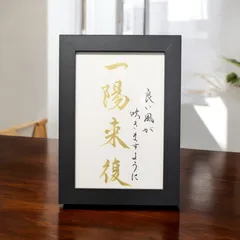 一陽来復
良い風が
吹きますように